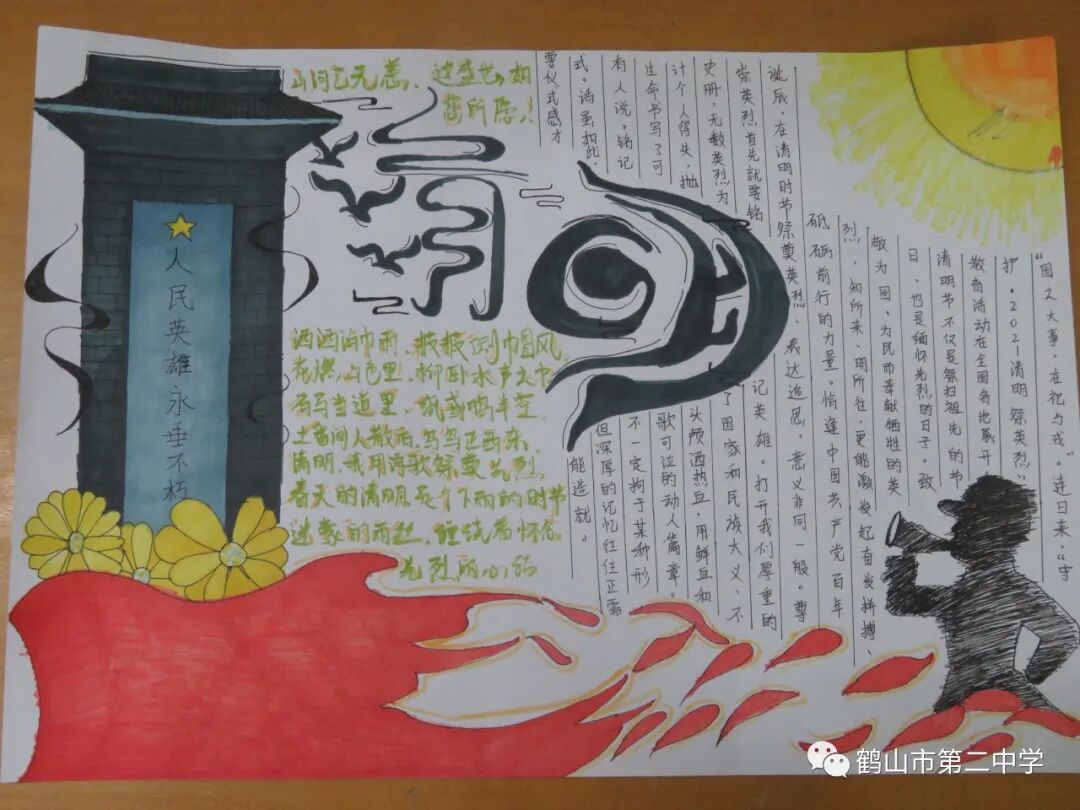 山河已无恙，这盛世，如
您所愿！
清明
人民英雄永垂不朽
洒洒沾巾雨，披披侧帽风。
花燃山色里，柳卧水声中。
石马当道里，纸鸢鸣半空。
墦间人散后，乌鸟正西东。
清明，我用诗歌祭奠先烈
春天的清明是个下雨的时节
迷蒙的雨丝，缠绕着怀念
先烈的心结
“国之大事，在祀与戎”。连日来，“守
护·2021清明祭英烈”
教育活动在全国各地展开
清明节不仅是祭扫祖先的节
日，也是缅怀先烈的日子。致
敬为国，为民而奉献牺牲的英
烈，知所来、明所往，更能激发起奋发拼搏、
砥砺前行的力量。恰逢中国共产党百年
诞辰，在清明时节祭奠英烈、表达追思，意义非同一般。尊
崇英烈首先就要铭记英雄。打开我们厚重的
史册，无数英烈为了国家和民族大义、不
计个人得失，抛头颅洒热血，用鲜血和
生命书写了可歌可泣的动人篇章。
有人说，铭记不一定拘于某种形
式。话虽如此，但深厚的记忆往往正需
要仪式感才能造就。
鹤山市第二中学